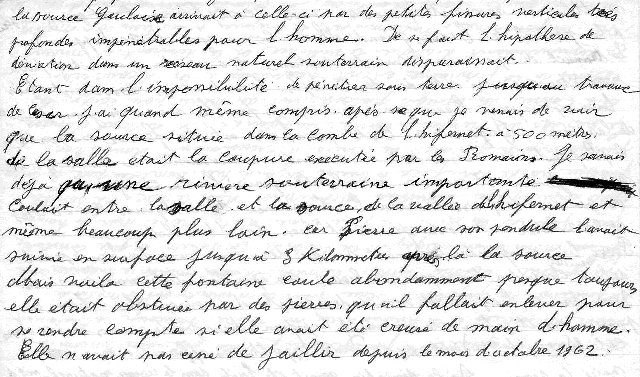 la source Gauloise arrivait à celle-ci par des petites fissures verticales très
profondes impénétrables pour l'homme. De se fait l'hipothère de
déviation dans un reseau naturel souterrain disparaissait.
Etant dans l'impossibilité de pénétrer sous terre jusqu'au travaux
de Cesar j'ai quand même compris après se que je venais de voir
que la source située dans la Combe de Lhifernet à 500 mètres.
de la salle était la coupure executée par les Romains. Je savais
déjà qu'une rivière souterraine importante
Coulait entre la salle et la source, de la vallée de Lhifernet et
même beaucoup plus loin. Car Pierre avec son pendule l'avait
suivie en surface jusqu'à 3 Kilomètres après là la source
Mais voila cette fontaine coule abondamment presque toujours
elle était obstruée par des pierres, qu'il fallait enlever pour
se rendre compte si elle avait été creusé de main d'homme.
Elle n'avait pas cessé de jaillir depuis le mois d'octobre 1962.